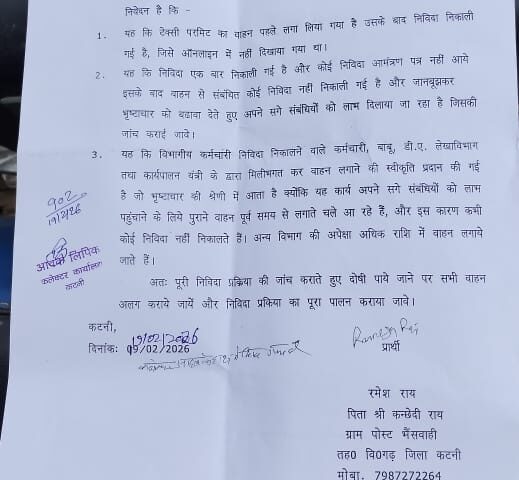 निवेदन है कि -
1. यह कि टेक्सी परमिट का वाहन पहले लगा लिया गया है उसके बाद निविदा निकाली
गई है, जिसे ऑनलाइन में नहीं दिखाया गया था।
2. यह कि निविदा एक बार निकाली गई है और कोई निविदा आमंत्रण पत्र नहीं आये
इसके बाद वाहन से संबंधित कोई निविदा नहीं निकाली गई है और जानबूझकर
भृष्टाचार को बढावा देते हुए अपने सगे संबंधियों को लाभ दिलाया जा रहा है जिसकी
जांच कराई जावे।
3. यह कि विभागीय कर्मचारी निविदा निकालने वाले कर्मचारी, बाबू, डी.ए. लेखाविभाग
तथा कार्यपालन यंत्री के द्वारा मिलीभगत कर वाहन लगाने की स्वीकृति प्रदान की गई
है जो भृष्टाचार की श्रेणी में आता है क्योंकि यह कार्य अपने सगे संबंधियों को लाभ
पहुंचाने के लिये पुराने वाहन पूर्व समय से लगाते चले आ रहे हैं, और इस कारण कभी
कोई निविदा नहीं निकालते हैं। अन्य विभाग की अपेक्षा अधिक राशि में वाहन लगाये
जाते हैं।
902
19/2/26
आवक लिपिक
कलेक्टर कार्यालय
कटनी
अतः पूरी निविदा प्रकिया की जांच कराते हुए दोषी पाये जाने पर सभी वाहन
अलग कराये जायें और निविदा प्रकिया का पूरा पालन कराया जावे।
कटनी,
19/02/2026
दिनांकः 09/02/2026
Ramesh Rai
प्रार्थी
रमेश राय
पिता श्री कन्छेदी राय
ग्राम पोस्ट भैंसवाही
तह0 वि0गढ़ जिला कटनी
मोबा. 7987272264